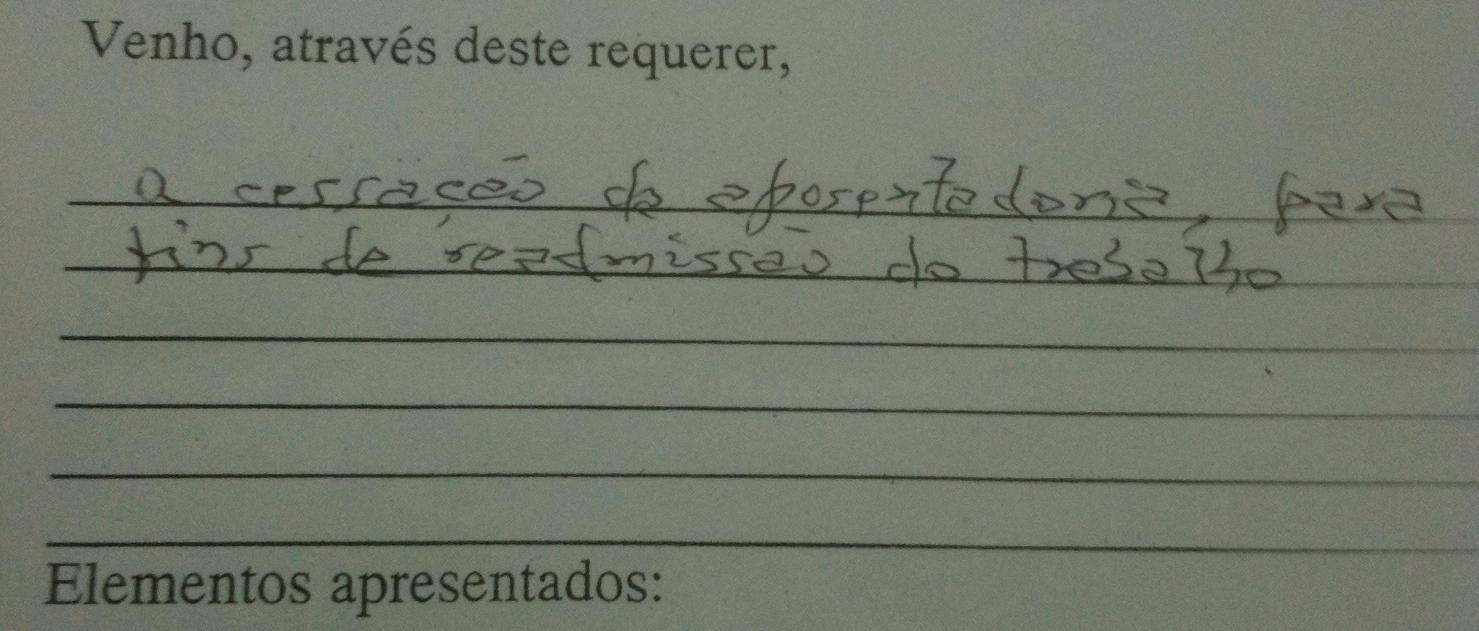 Venho, através deste requerer,
a cessação da aposentadoria, para
fins de readmissão do trabalho
Elementos apresentados: